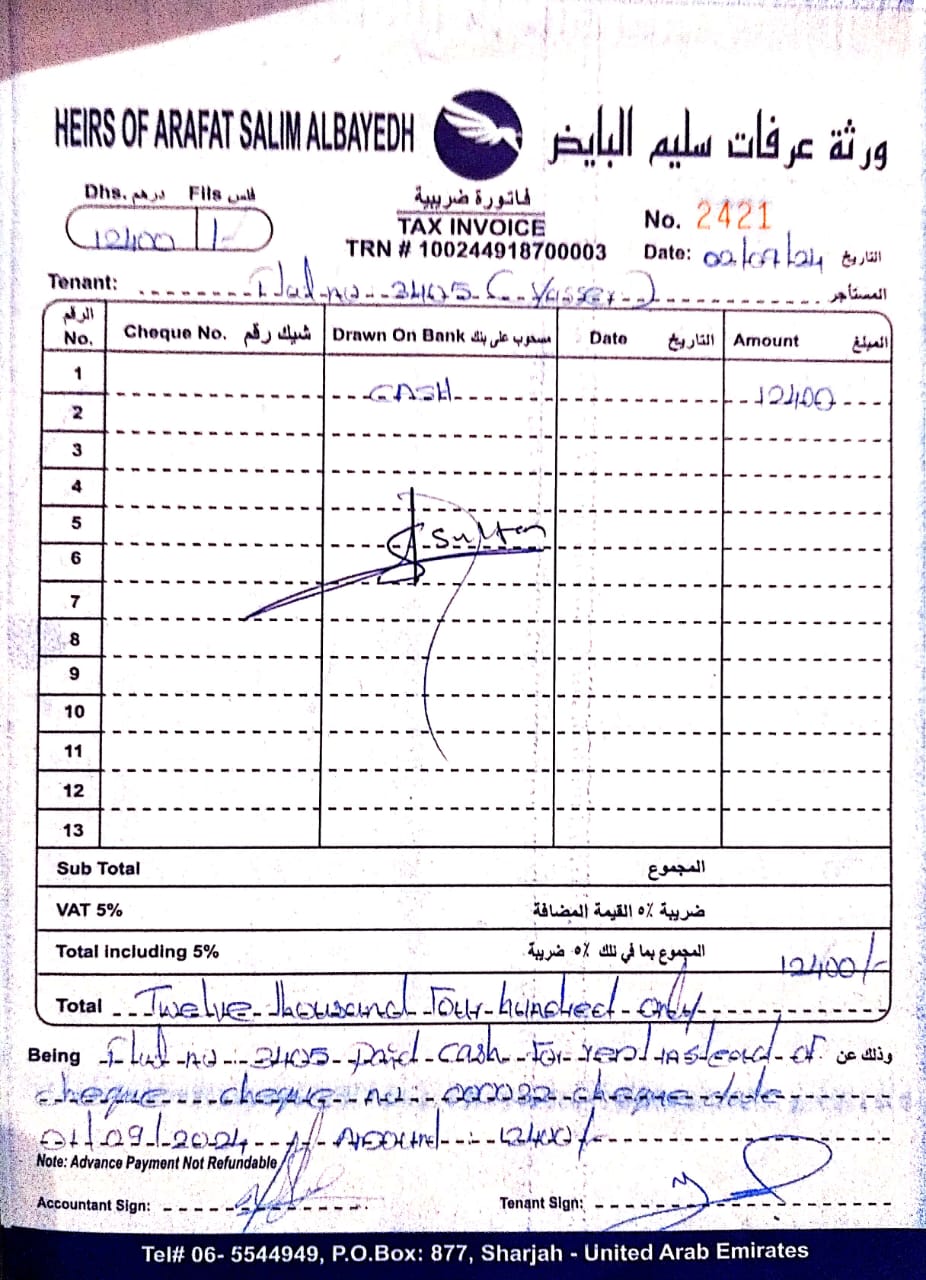 HEIRS OF ARAFAT SALIM ALBAYEDH ورثة عرفات سليم البايض
Dhs. درهم Fils فلس
12400 /-
فاتورة ضريبية
TAX INVOICE
TRN # 100244918700003
No. 2421
Date: 02/09/24 التاريخ
Tenant: Flat no - 3405 ( Yasser ) المستأجر
الرقم No. Cheque No. شيك رقم Drawn On Bank مسحوب على بنك Date التاريخ Amount المبلغ
1 CASH 12400
2
3
4
5 Sultan
6
7
8
9
10
11
12
13
Sub Total المجموع
VAT 5% ضريبة ٥٪ القيمة المضافة
Total including 5% المجموع بما في ذلك ٥٪ ضريبة 12400/-
Total Twelve thousand four hundred only
Being Flat no : 3405 paid cash for rent instead of وذلك عن
cheque cheque no : 000032 cheque date
01/09/2024 Amount : 12400/-
Note: Advance Payment Not Refundable
Accountant Sign: Tenant Sign:
Tel# 06- 5544949, P.O.Box: 877, Sharjah - United Arab Emirates